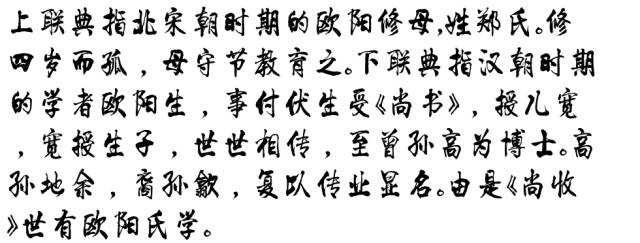 上联典指北宋朝时期的欧阳修母,姓郑氏。修
四岁而孤，母守节教育之。下联典指汉朝时期
的学者欧阳生，事付伏生受《尚书》，授儿宽
，宽授生子，世世相传，至曾孙高为博士。高
孙地余，裔孙歙，复以传业显名。由是《尚收
》世有欧阳氏学。